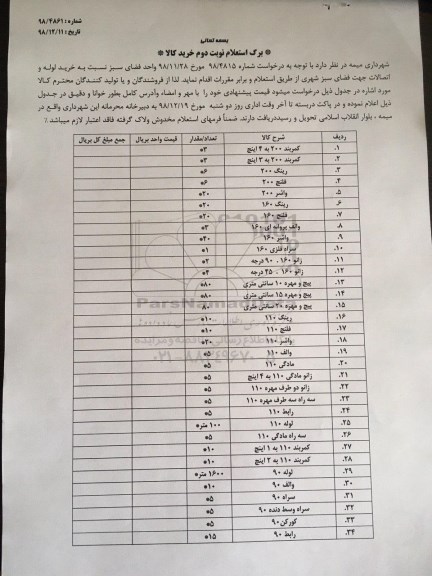 بسمه تعالی
شماره : ۹۸/۴۸۶۱
تاریخ : ۹۸/۱۲/۱۱
* برگ استعلام نوبت دوم خرید کالا *
شهرداری میمه در نظر دارد با توجه به درخواست شماره ۹۸/۴۸۱۵ مورخ ۹۸/۱۱/۲۸ واحد فضای سبز نسبت به خرید لوله و
اتصالات جهت فضای سبز شهری از طریق استعلام و برابر مقررات اقدام نماید. لذا از فروشندگان و یا تولید کنندگان محترم کالا
مورد اشاره در جدول ذیل درخواست میشود قیمت پیشنهادی خود را با مهر و امضاء وآدرس کامل بطور خوانا و دقیق در جدول
ذیل اعلام نموده و در پاکت دربسته تا آخر وقت اداری روز دو شنبه مورخ ۹۸/۱۲/۱۹ به دبیرخانه محرمانه این شهرداری واقع در
میمه ، بلوار انقلاب اسلامی تحویل و رسید دریافت دارند. ضمناً فرمهای استعلام مخدوش ولاک گرفته فاقد اعتبار لازم میباشد
ردیف شرح کالا تعداد/مقدار قیمت واحد بریال جمع مبلغ کل بریال
۱. کمربند ۲۰۰ به ۴ اینچ ۳*
۲. کمربند ۲۰۰ به ۳ اینچ ۳*
۳. رینگ ۲۰۰ ۶*
۴. فلنچ ۲۰۰ ۶*
۵. واشر ۲۰۰ ۲۰*
۶. رینگ ۱۶۰ ۲۰*
۷. فلنچ ۱۶۰ ۲۰*
۸. والف پروانه ای ۱۶۰ ۳*
۹. واشر ۱۶۰ ۴۰*
۱۰. سراه فلزی ۱۶۰ ۱*
۱۱. زانو ۱۶۰ ، ۹۰ درجه ۲*
۱۲. زانو ۱۶۰ ، ۴۵ درجه ۲*
۱۳. پیچ و مهره ۱۰ سانتی متری ۸۰*
۱۴. پیچ و مهره ۱۵ سانتی متری ۸۰*
۱۵. پیچ و مهره ۲۰ سانتی متری ۸۰
۱۶. رینگ ۱۱۰ ۱۰*
۱۷. فلنچ ۱۱۰ ۱۰*
۱۸. واشر ۱۱۰ ۳۰*
۱۹. والف ۱۱۰ ۵*
۲۰. مادگی ۱۱۰ ۵*
۲۱. زانو مادگی ۱۱۰ به ۴ اینچ ۵*
۲۲. زانو دو طرف مهره ۱۱۰ ۵*
۲۳. سه راه سه طرف مهره ۱۱۰ ۵*
۲۴. رابط ۱۱۰ ۵*
۲۵. لوله ۱۱۰ ۱۰۰ متر*
۲۶. سه راه مادگی ۱۱۰ ۵*
۲۷. کمربند ۱۱۰ به ۱ اینچ ۱۰*
۲۸. کمربند ۱۱۰ به ۲ اینچ ۱۰*
۲۹. لوله ۹۰ ۱۶۰۰ متر*
۳۰. والف ۹۰ ۱۰*
۳۱. سراه ۹۰ ۵*
۳۲. سراه وسط دنده ۹۰ ۵*
۳۳. کورکن ۹۰ ۵*
۳۴. رابط ۹۰ ۱۵*